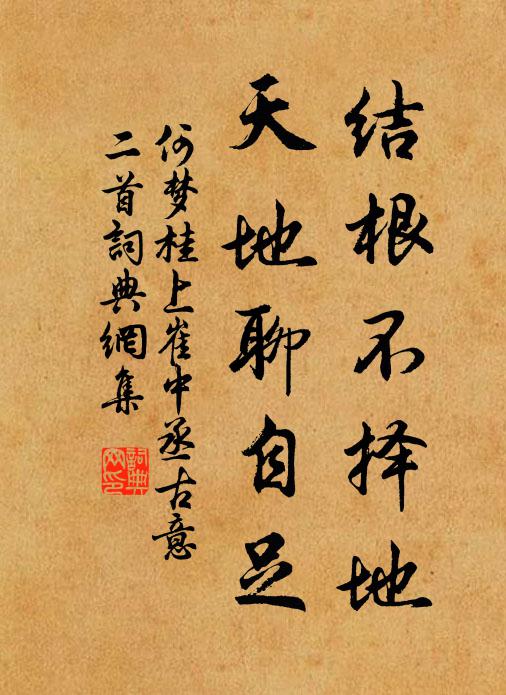 结根不择地
天地聊自足
何梦桂上崔中丞古意
二首詞典網集
詞典網印